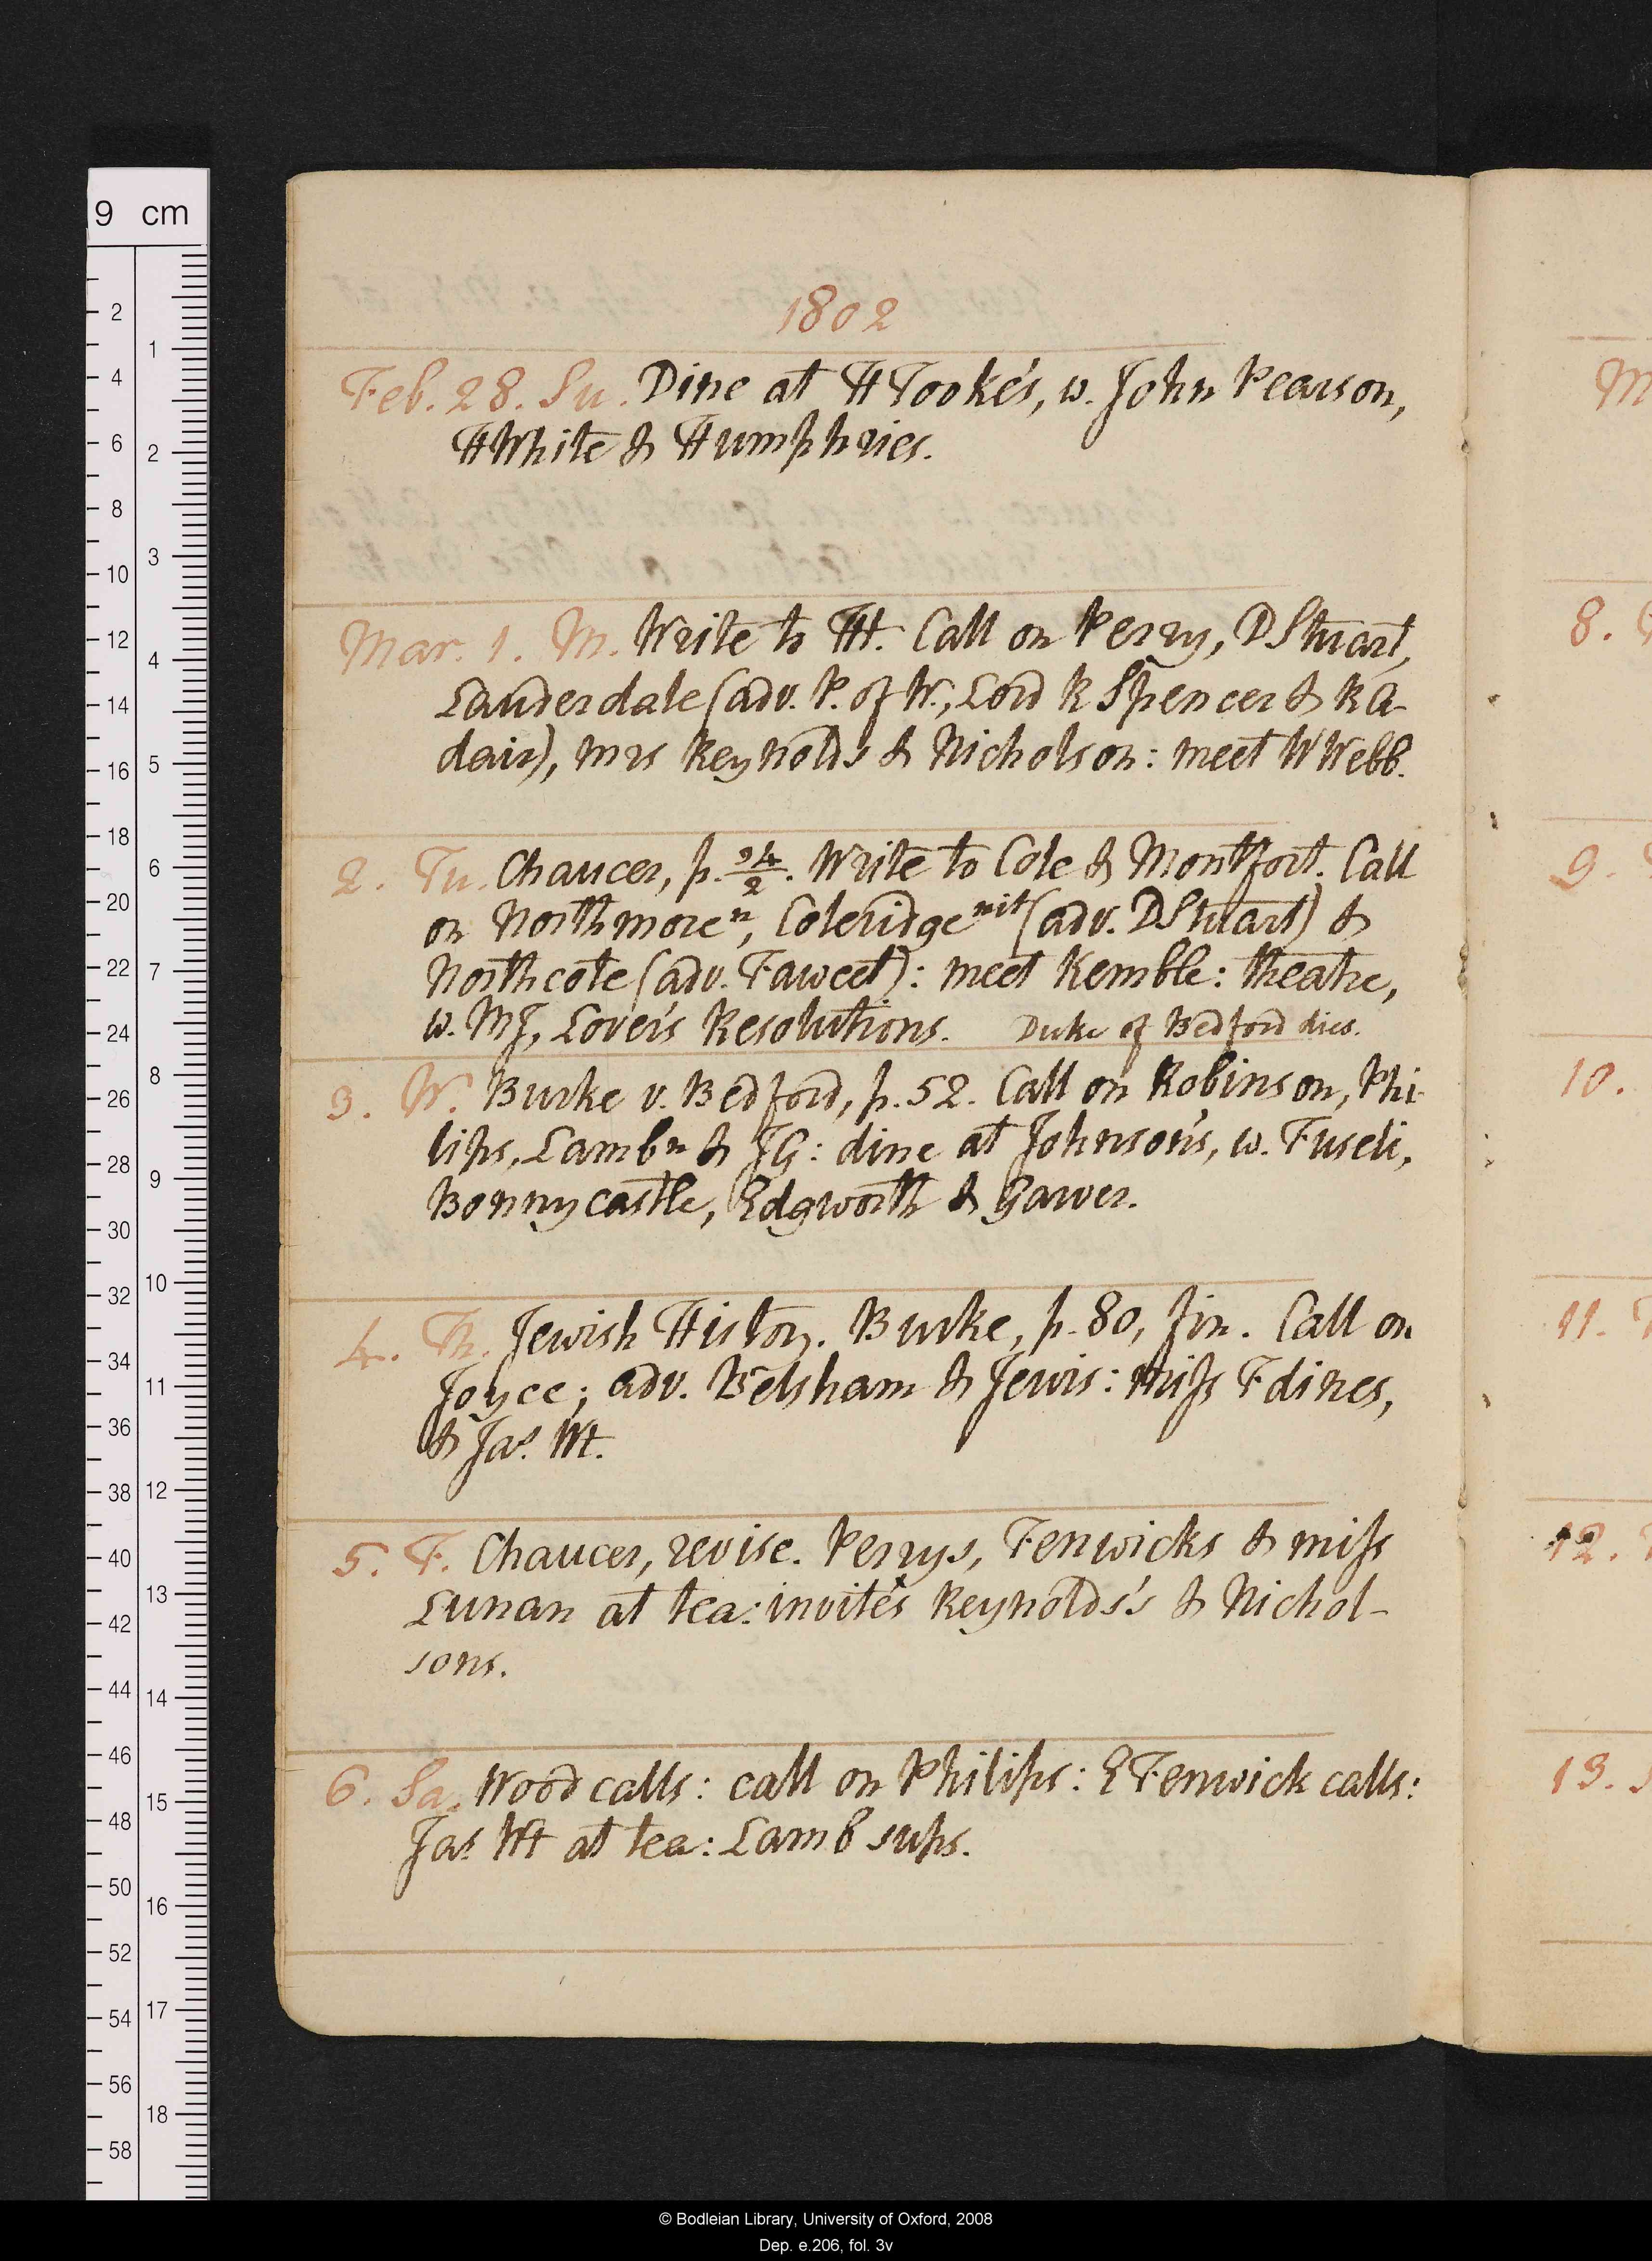 1802
Feb. 28. Su. Dine at HTooke's, w. John Pearson,
HWhite & Humphries.
Mar. 1. M. Write to TH. Call on Perry, DStuart,
Lauderdale (adv. P. of W., Lord R Spencer & R A-
dair), mrs Reynolds & Nicholson: meet W Webb.
2. Tu. Chaucer, p. 34/2. Write to Cole & Montfort. Call
on Northmore n, Coleridge nit (adv. DStuart) &
Northcote (adv. Fawcet): meet Kemble: theatre,
w. MJ, Lover's Resolutions. Duke of Bedford dies.
3. W. Burke v. Bedford, p. 52. Call on Robinson, Phi-
lips, Lamb n & JG: dine at Johnson's, w. Fuseli,
Bonnycastle, Edgworth & Garver.
4. Th. Jewish History. Burke, p. 80, fin. Call on
Joyce; adv. Belsham & Jewis: Miss F dines,
& Jas. Wt.
5. F. Chaucer, revise. Perrys, Fenwicks & miss
Lunan at tea: invités Reynolds's & Nichol-
sons.
6. Sa. Wood calls: call on Philips: EFenwick calls:
Jas Wt at tea: Lamb sups.
M
8.
9.
10.
11.
12.
13.
9 cm
2
4
6
8
10
12
14
16
18
20
22
24
26
28
30
32
34
36
38
40
42
44
46
48
50
52
54
56
58
1
2
3
4
5
6
7
8
9
10
11
12
13
14
15
16
17
18
© Bodleian Library, University of Oxford, 2008
Dep. e.206, fol. 3v